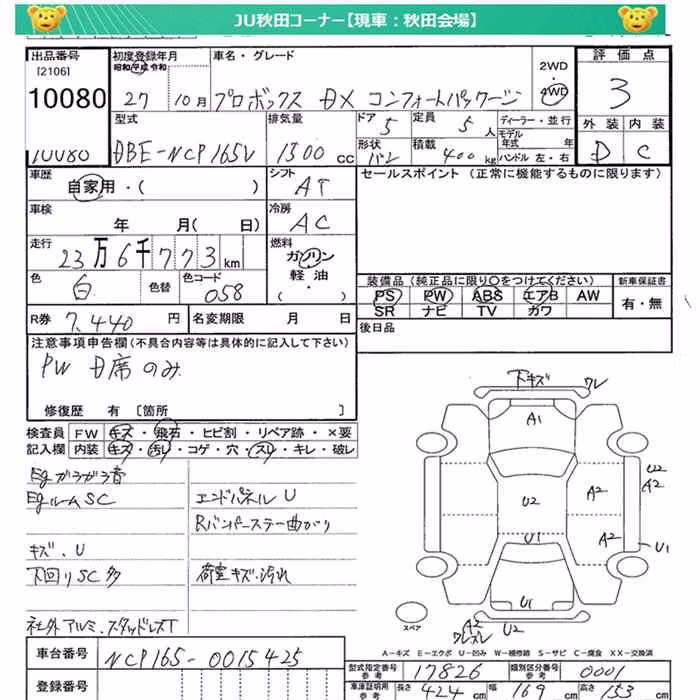 JU秋田コーナー【現車：秋田会場】
出品番号 初度登録年月 車名・グレード 2WD 評価点
[2106] 昭和 平成 令和 4WD
10080 27 10月 プロボックス DX コンフォートパッケージ 3
型式 排気量 ドア 5 定員 5人 ディーラー・並行 外装 内装
モデル年式 年
10080 DBE-NCP165V 1300 cc 形状 バン 積載 400kg ハンドル 左・右 D C
車歴 シフト セールスポイント（正常に機能するものに限ります）
自家用・（ ） AT
車検 冷房
年 月（ 日） AC
走行 燃料
23万6千773km ガソリン
軽油
色 色替 色コード （・ ）
白 058
装備品（純正品に限り○をつけてください） 新車保証書
PS PW ABS エアB AW 有・無
SR ナビ TV カワ
R券 7,440円 名変期限 月 日
後日品
注意事項申告欄（不具合内容等は具体的に記入して下さい）
PW D席のみ
修復歴 有 [箇所 ]
検査員 FW キズ・飛石・ヒビ割・リペア跡・×要
記入欄 内装 キズ・汚レ・コゲ・穴・スレ・キレ・破レ
Egガラガラ音
EgルームSC エンドパネルU
Rバンパーステー曲がり
キズ、U
下回りSC多 荷室キズ・汚れ
社外アルミ、スタッドレスT
下キズ ワレ
A1
U2 A2 U2 A2
U1 A2 U1
U1
A2 U2
スペア
A－キズ E－エクボ U－凹み W－補修跡 S－サビ C－腐食 XX－交換済
車台番号 NCP165-0015425
型式指定番号 参考 17826 類別区分番号 参考 0001
登録番号
車庫証明用 参考 長さ 424cm 幅 169cm 高さ 153cm